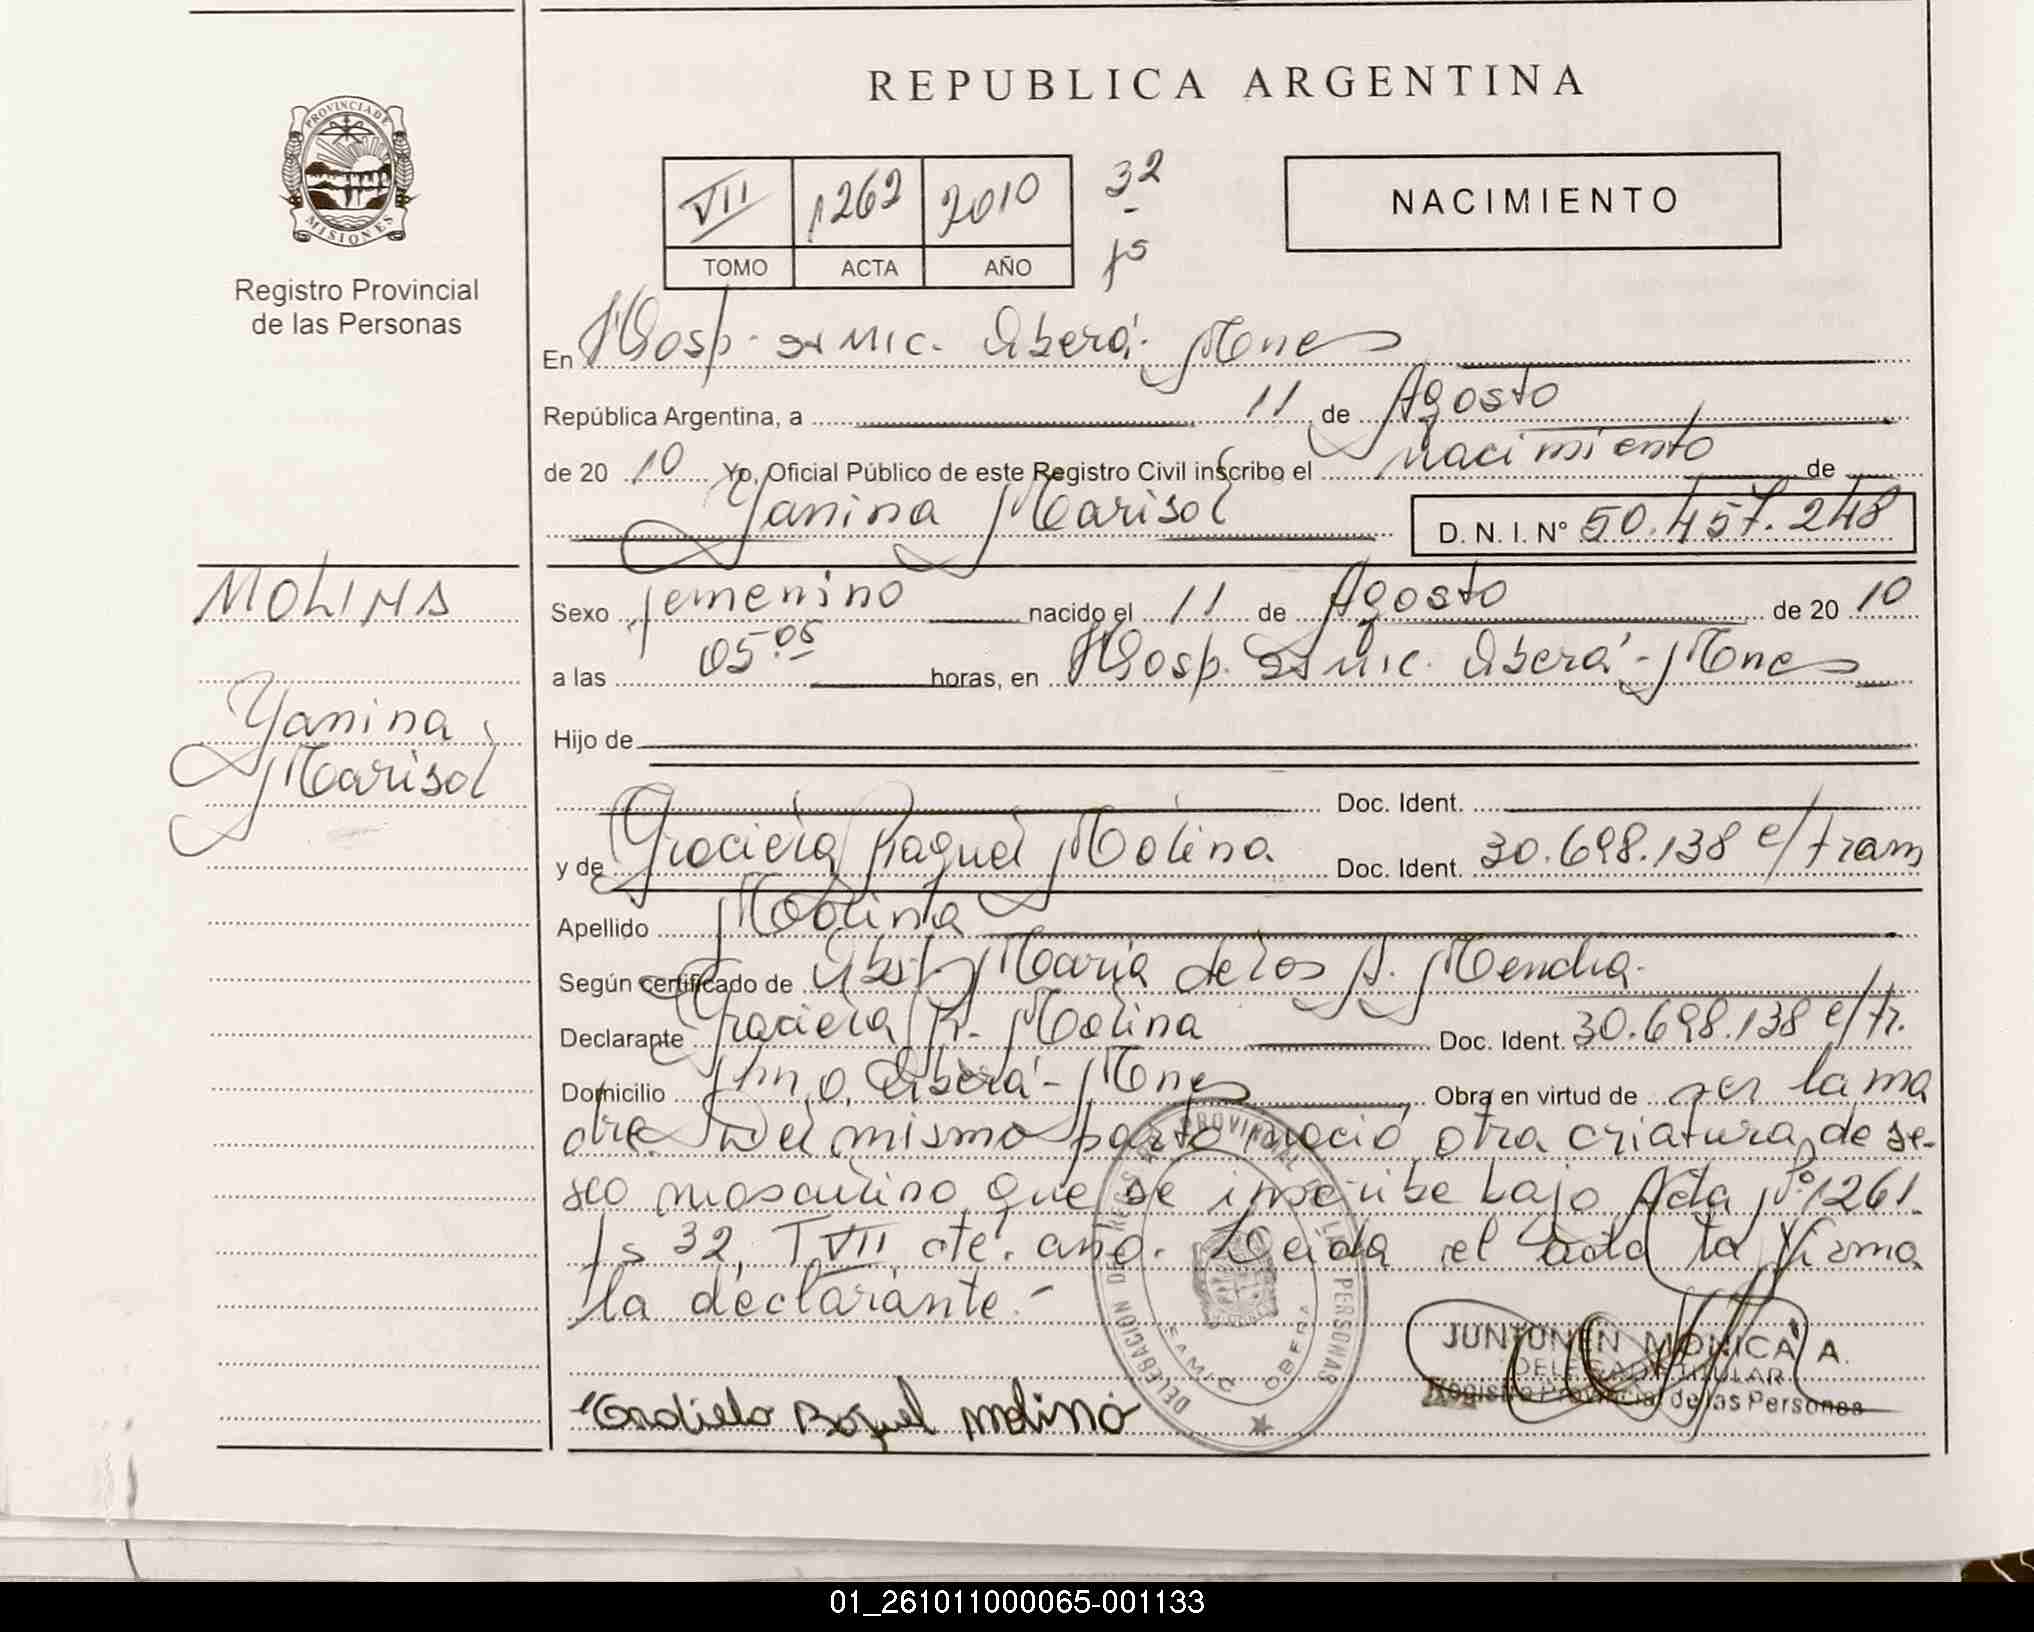 REPUBLICA ARGENTINA
PROVINCIA DE
MISIONES
Registro Provincial
de las Personas
VII 1262 2010
TOMO ACTA AÑO
32
15
NACIMIENTO
En Hosp. SAMIC. Oberá. Mnes
República Argentina, a 11 de Agosto
de 20 10 Yo, Oficial Público de este Registro Civil inscribo el nacimiento de
Yanina Marisol D. N. I. Nº 50.457.248
MOLINA
Yanina
Marisol
Sexo femenino nacido el 11 de Agosto de 20 10
a las 05.05 horas, en Hosp. SAMIC. Oberá - Mnes
Hijo de
Doc. Ident.
y de Graciela Raquel Molina Doc. Ident. 30.698.138 e/tram
Apellido Molina
Según certificado de Obst. María de los A.
Declarante Graciela R. Molina Doc. Ident. 30.698.138 e/tr.
Domicilio Oberá - Mnes Obra en virtud de ser la ma
dre. Del mismo parto nació otra criatura de se-
xo masculino que se inscribe bajo Acta Nº 1261
fs 32, T VII, cte. año. Leída el acta la firma
la declarante.-
DELEGACION DE REGISTRO PROVINCIAL DE LAS PERSONAS
SAMIC OBERA
JUNTUNEN MONICA A.
DELEGADA TITULAR
Registro Provincial de las Personas
Graciela Raquel Molina
01_261011000065-001133